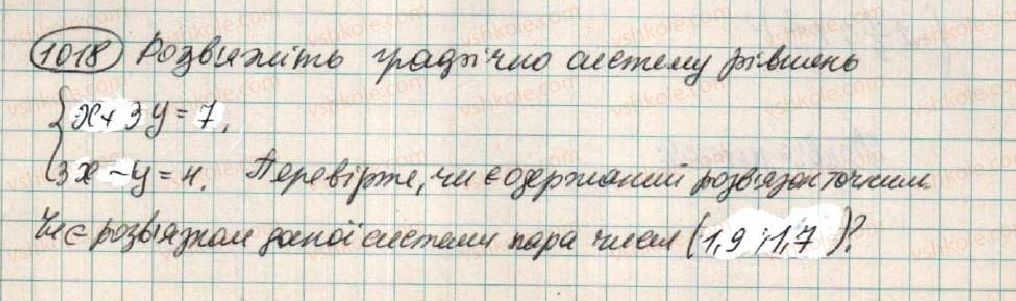 1018 Розв'яжіть графічно систему рівнянь
{ x + 3y = 7,
3x - y = 4. Перевірте, чи є одержаний розв'язок точним.
Чи є розв'язком даної системи пара чисел (1,9 ; 1,7)?